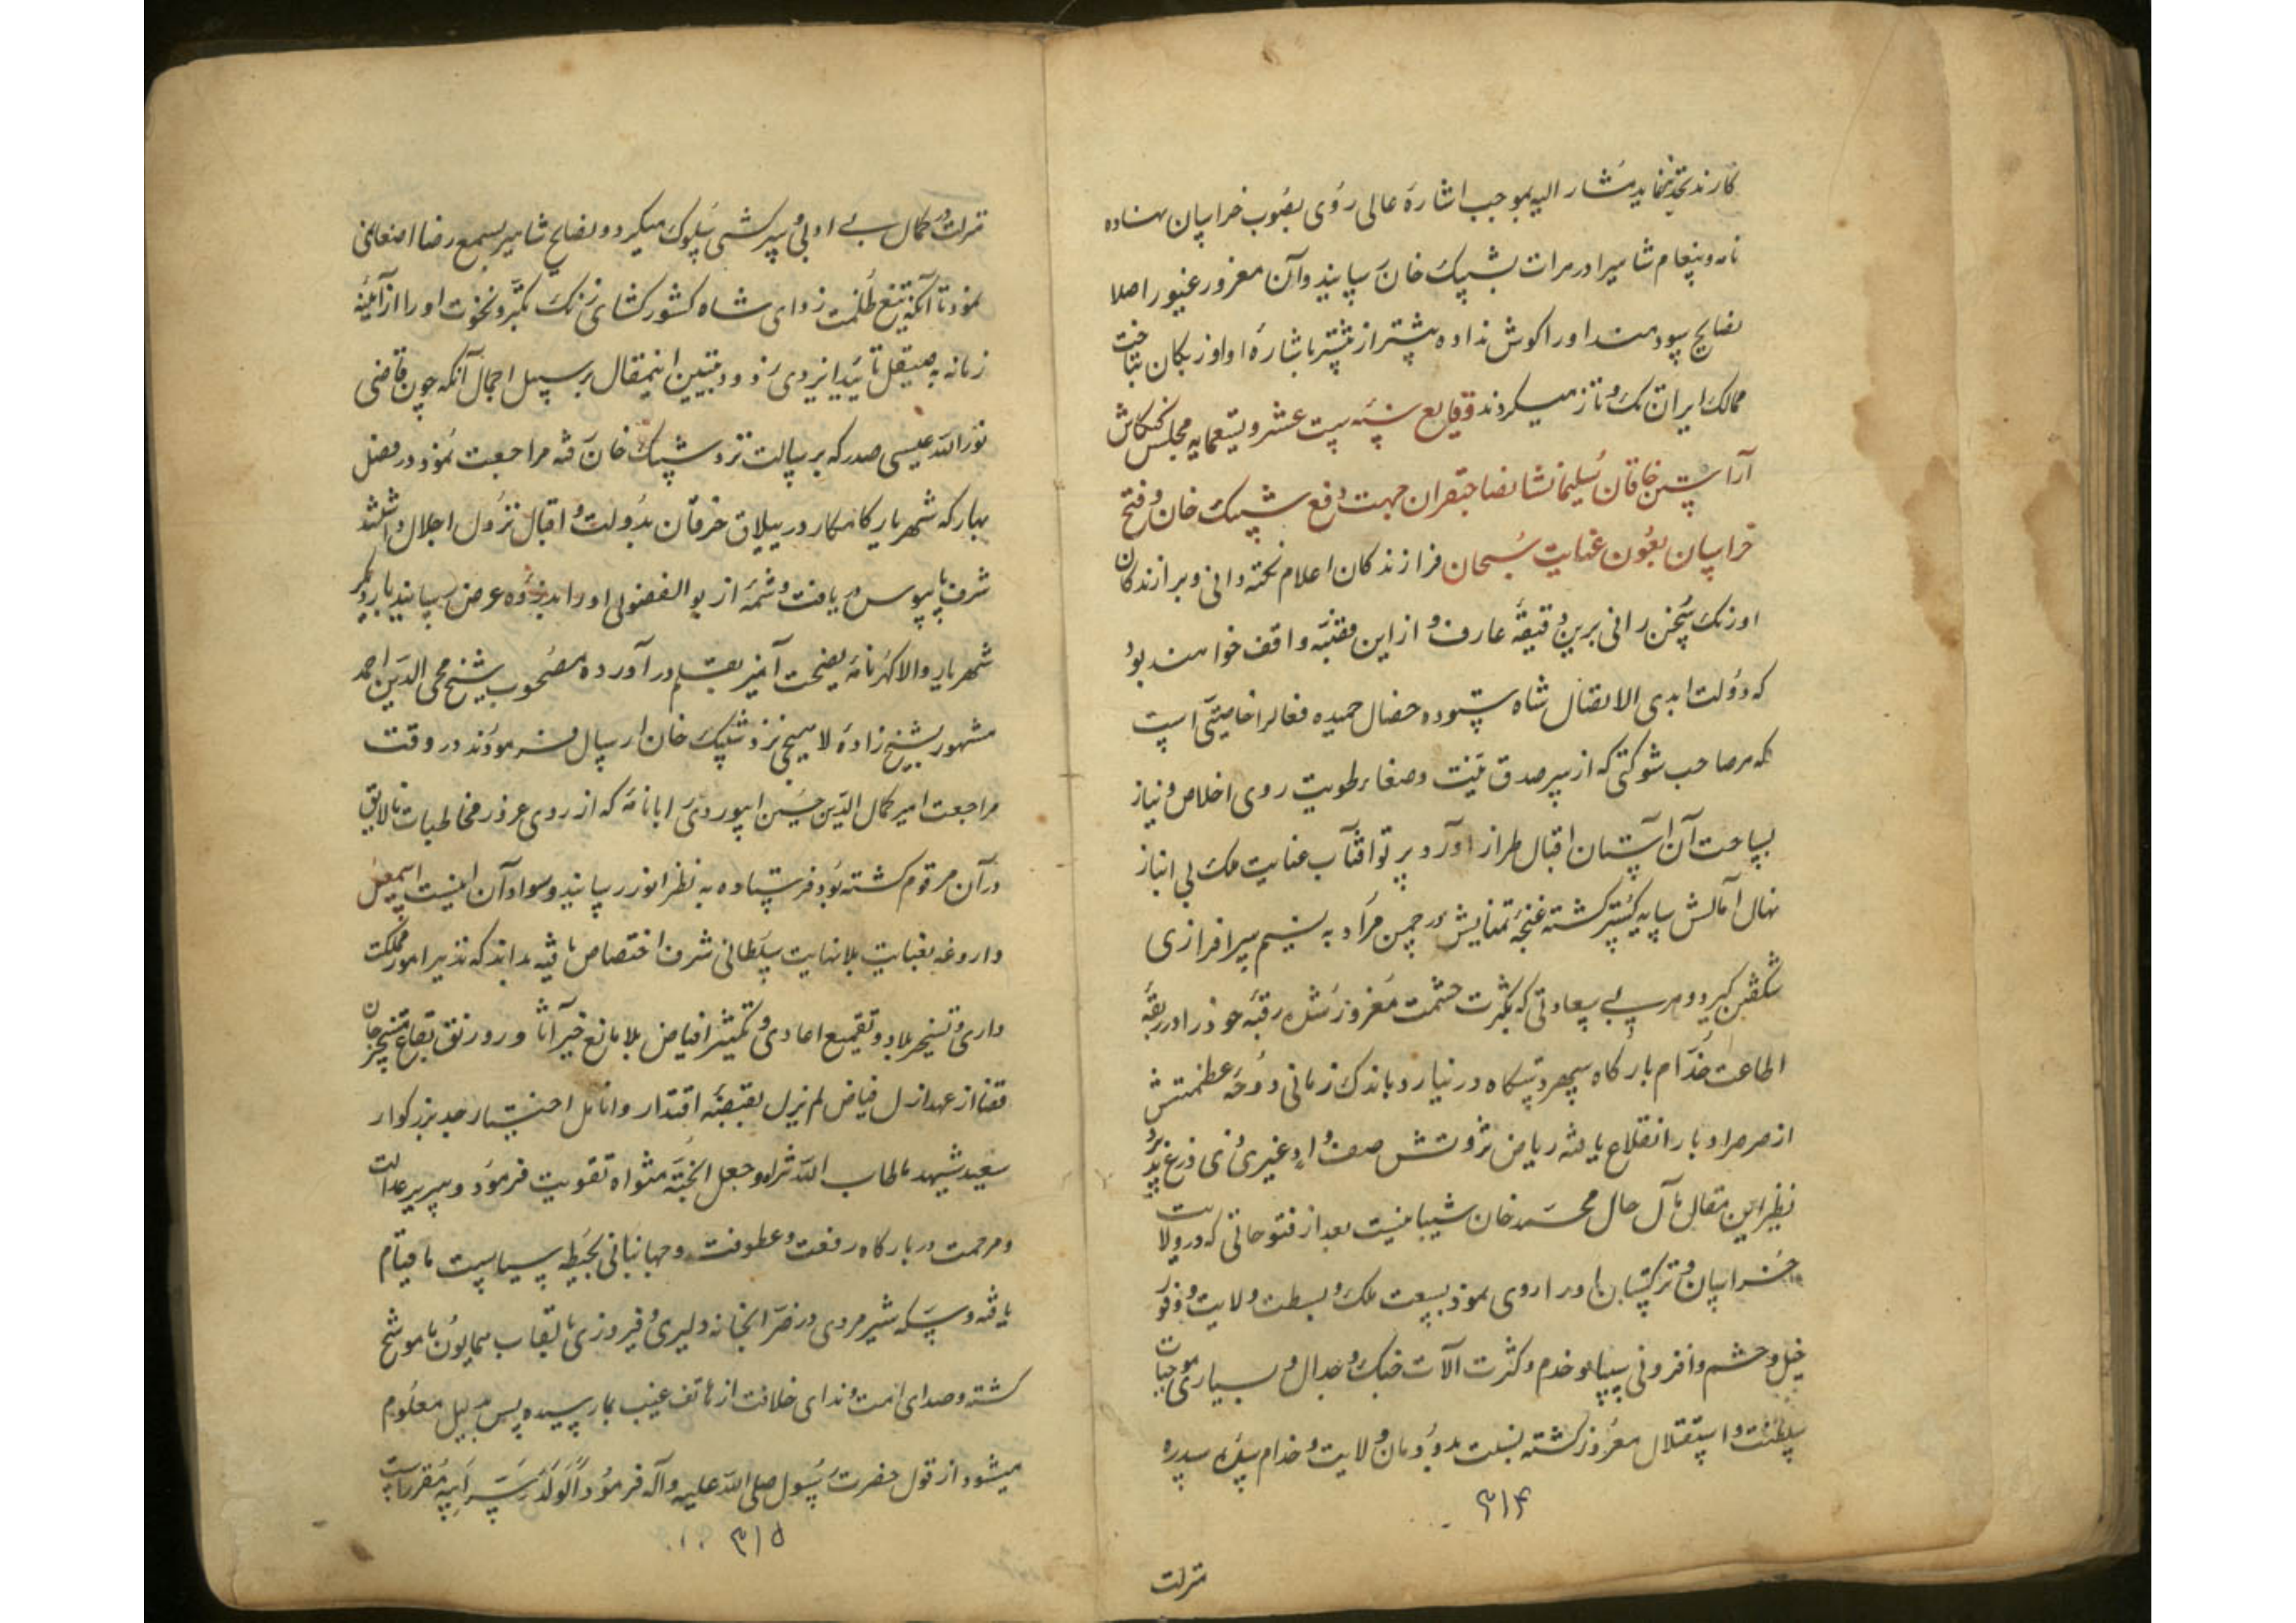 کارند تجدید نماید مشار الیه بموجب اشارهٔ عالی روی بصوب خراسان نهاده
نامه و پیغام شاهی را در هرات بشیبک خان رسانید و آن مغرور غیور اصلا
نصایح سودمند او را کوش نداده پیشتر از پیشتر باشارهٔ او اوزبکان بتاخت
ممالک ایران تک و تاز میکردند وقایع سنه ست عشر و تسعمایه مجلس کنکاش
آراستن خاقان سلیمانشان صاحبقران جهت دفع شیبک خان و فتح
خراسان بعون عنایت سبحان فرازندکان اعلام نکته دانی و برازندکان
اورنک سخن رانی برین دقیقه عارف و از این مقدمه واقف خواهند بود
که دولت ابدی الاتصال شاه ستوده خصال حمیده فعالرا خاصیتی است
که هر صاحب شوکتی که از سر صدق نیت و صفاء طویت روی اخلاص و نیاز
بساحت آن آستان اقبال طراز آورد پرتو آفتاب عنایت ملک بی انباز
نهال آمالش سایه کستر کشته غنچهٔ تمنایش در چمن مراد به نسیم سرافرازی
شکفتن کیرد و هر بی سعادتی که بکثرت حشمت مغرور شده رقبهٔ خود را در ربقهٔ
اطاعت خدام بارکاه سپهر دستکاه در نیارد و باندک زمانی دوحهٔ عظمتش
از صرصر ادبار انقلاع یافته ریاض ثروتش صفت وادٍ غیری ذی زرع پذیرد
نظیر این مقال مآل حال محمد خان شیبانیست بعد از فتوحاتی که در ولایت
خراسان و ترکستان او را روی نمود بسعت ملک و بسطت ولایت و وفور
خیل و حشم و افزونی سپاه و خدم و کثرت آلات جنک و جدال و بسیاری موجبات
سلطنت و استقلال مغرور کشته نسبت بدودمان ولایت و خدام سده سدره
۳۱۴
منزلت
منزلت در کمال بے ادبی و سرکشی سلوک میکرد و نصایح شاهی بسمع رضا اصغا نمی
نمود تا آنکه تیغ ظلمت زدای شاه کشورکشای زنک تکبر و نخوت او را از آینهٔ
زمانه به صیقل تائید ایزدی زدود تبیین اینمقال بر سبیل اجمال آنکه چون قاضی
نور الله عیسی صدر که برسالت نزد شیبک خان رفته مراجعت نمود در فصل
بهار که شهریار کامکار در ییلاق خرقان بدولت و اقبال نزول اجلال داشتند
شرف پابوس دریافت و شمهٔ از بو الفضولی او را بذروه عرض رسانید بار دیکر
شهریار والا کهر نامهٔ نصیحت آمیز بقلم در آورده مصحوب شیخ محی الدین احمد
مشهور بشیخ زادهٔ لاهیجی نزد شیبک خان ارسال فرمودند در وقت
مراجعت امیر کمال الدین حسین ابیوردی را با نامهٔ که از روی غرور مخاطبات نالایق
در آن مرقوم کشته بود فرستاده به نظر انور رسانید و سواد آن اینست اسمعیل
داروغه بعنایت بلا نهایت سلطانی شرف اختصاص یافته بداند که تدبیر امور مملکت
داری و تسخیر بلاد و تقمیع اعادی و تکثیر افیاض بلا مانع خیر آثار و رونق بقاع متبرجان
قضا از عهد ازل فیاض لم یزل بقبضهٔ اقتدار و انامل اختیار جد بزرکوار
سعید شهید ما طاب الله ثراه و جعل الجنة مثواه تقویت فرمود و سریر عدالت
و مرحمت در بارکاه رفعت و عطوفت و جهانبانی بحیطه سیاست ما قیام
یافته و سکه شیر مردی در ضرابخانه دلیری و فیروزی بالقاب همایون ما موشح
کشته و صدای امامت و ندای خلافت از هاتف غیب بما رسیده پس بدلیل معلوم
میشود از قول حضرت رسول صلی الله علیه و آله فرمود الولد سر ابیه مقرر است
۳۱۵